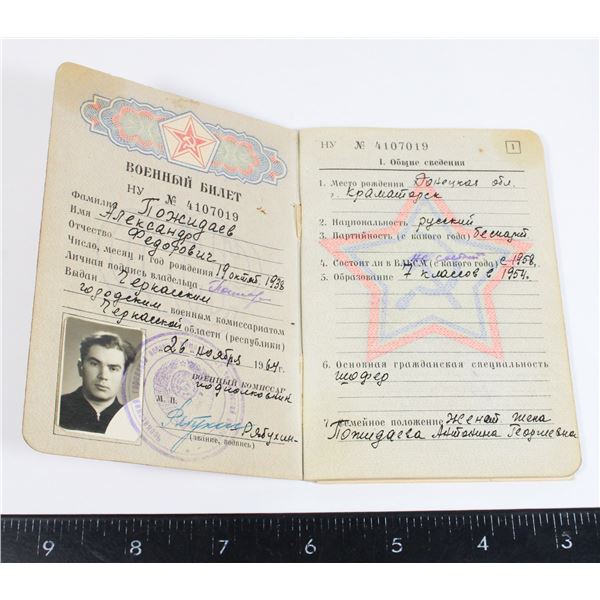 ВОЕННЫЙ БИЛЕТ
НУ № 4107019
Фамилия Пожидаев
Имя Александр
Отчество Федорович
Число, месяц и год рождения 19 октяб. 1938
Личная подпись владельца
Выдан Черкасским
городским военным комиссариатом
Черкасской области (республики)
26 ноября 1964 г.
ВОЕННЫЙ КОМИССАР
подполковник
М. П.
Рябухин
(звание, подпись)
НУ № 4107019 1
1. Общие сведения
1. Место рождения Донецкая обл.
г. Краматорск
2. Национальность русский
3. Партийность (с какого года) беспарт
4. Состоит ли в ВЛКСМ (с какого года) с 1958
5. Образование 7 классов в 1954г.
6. Основная гражданская специальность
шофер
7. Семейное положение Женат жена
Пожидаева Антонина Георгиевна
9 8 7 6 5 4 3